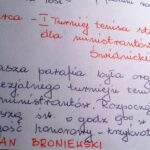 rca - I Turniej tenisa sto
dla ministrantów
Świdnicki
asza parafia była org
ecjalnego turnieju ten
ministrantów. Rozpoczę
się o godz
ość honorowy - krzyknę
AN BRONIEWSKI